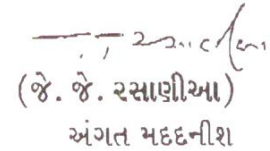 (જે. જે. રસાણીઆ)
અંગત મદદનીશ